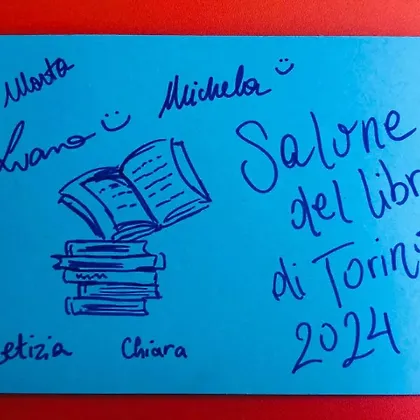 Marta
Michela
Salone
del libr
di Torin
2024
etizia
Chiara